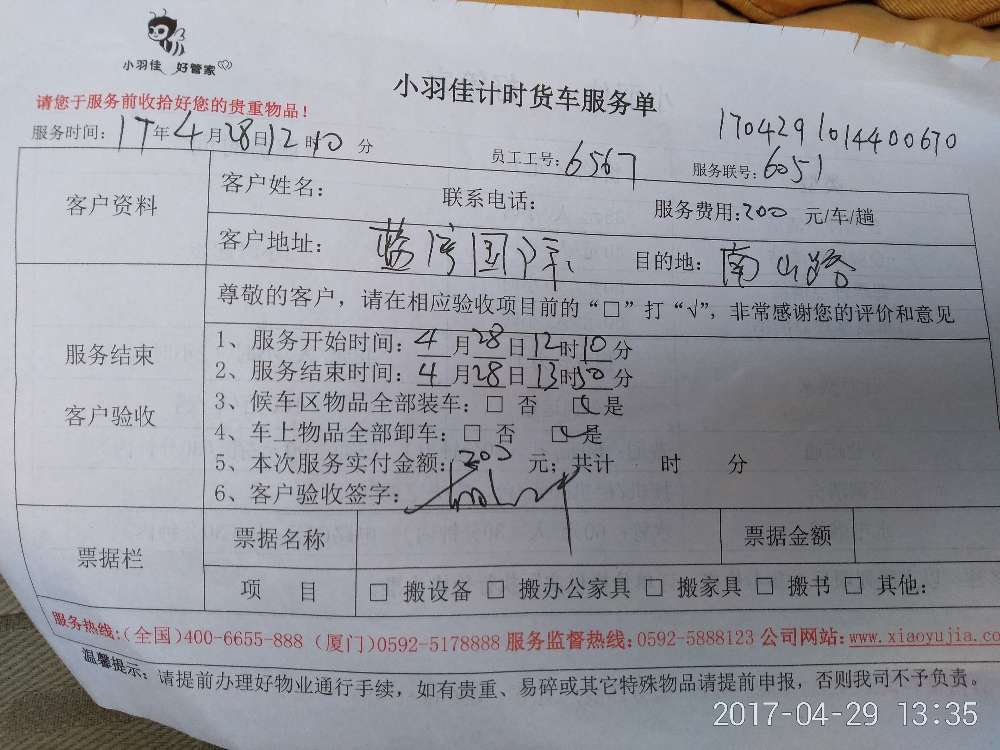 小羽佳 好管家
小羽佳计时货车服务单
请您于服务前收拾好您的贵重物品！
1704291014400670
服务时间：17年4月28日12时10分
员工工号：6567
服务联号：6051
客户资料
客户姓名：
联系电话：
服务费用：200 元/车/趟
客户地址：蓝湾国际
目的地：南山路
尊敬的客户，请在相应验收项目前的“□”打“√”，非常感谢您的评价和意见
服务结束
客户验收
1、服务开始时间：4月28日12时10分
2、服务结束时间：4月28日13时30分
3、候车区物品全部装车：□ 否 □ 是
4、车上物品全部卸车：□ 否 □ 是
5、本次服务实付金额：200 元；共计 时 分
6、客户验收签字：
票据栏
票据名称
票据金额
项 目
□ 搬设备 □ 搬办公家具 □ 搬家具 □ 搬书 □ 其他：
服务热线：(全国)400-6655-888 (厦门)0592-5178888 服务监督热线：0592-5888123 公司网站：www.xiaoyujia.co
温馨提示：请提前办理好物业通行手续，如有贵重、易碎或其它特殊物品请提前申报，否则我司不予负责。
2017-04-29 13:35